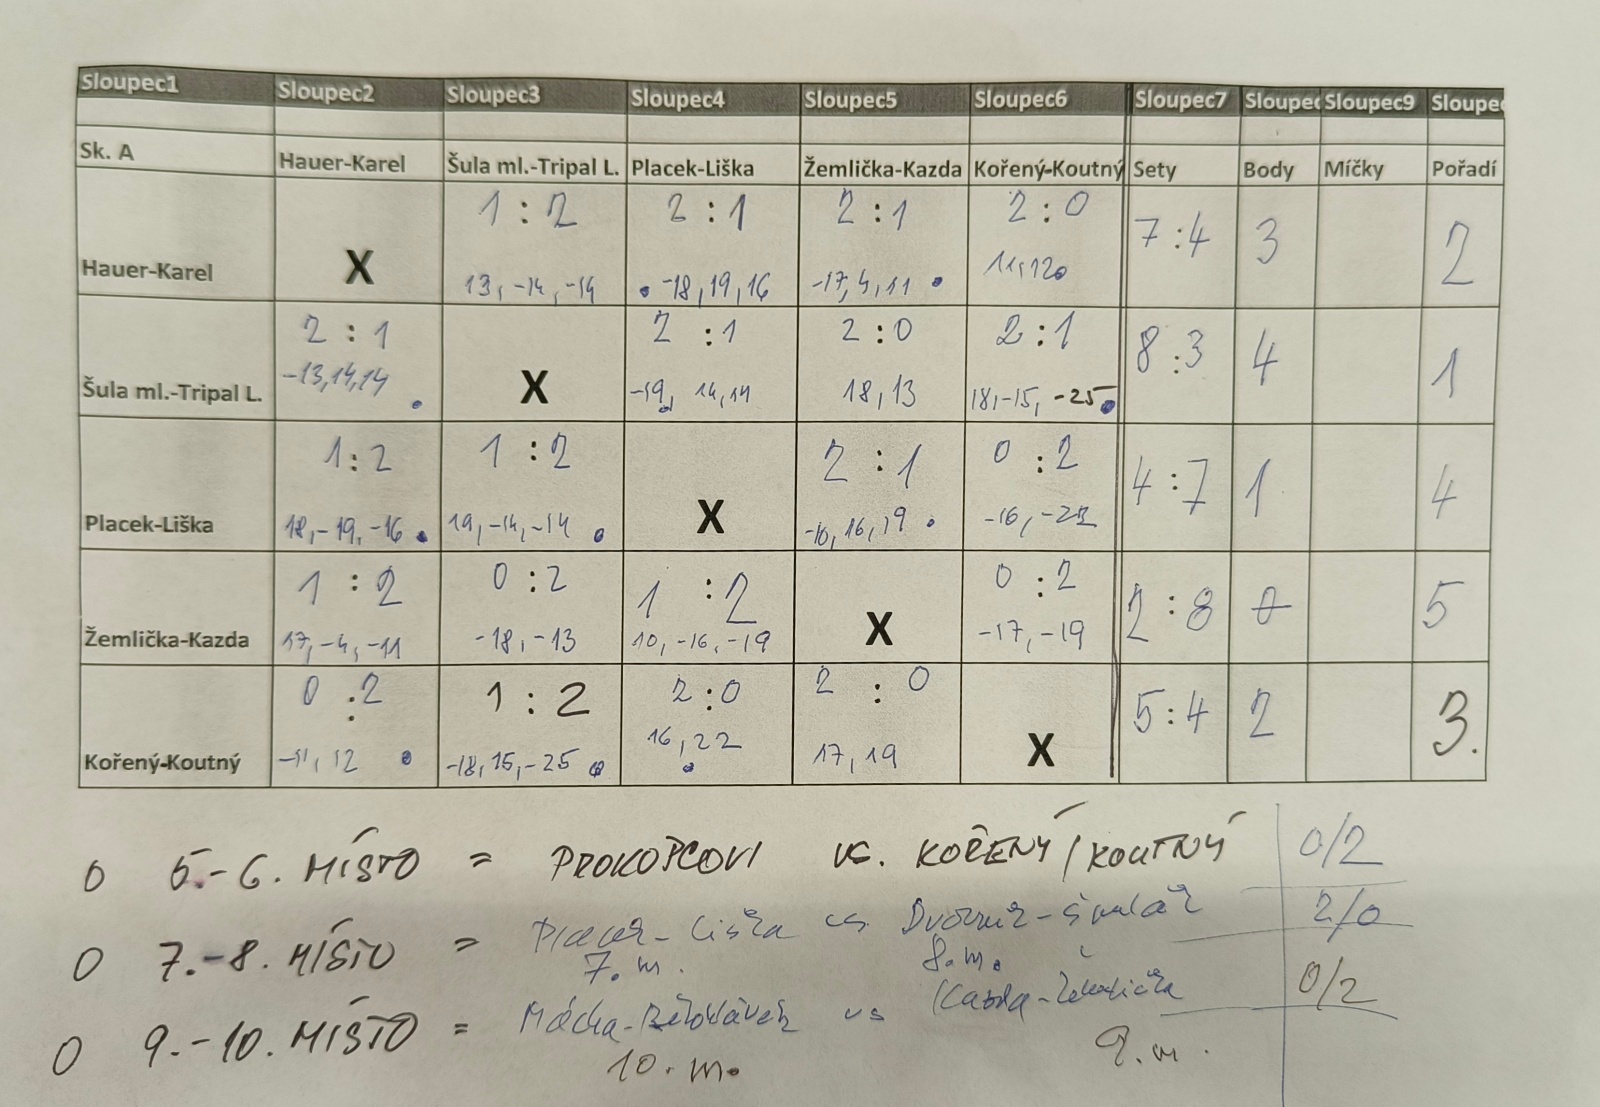 Sloupec1 Sloupec2 Sloupec3 Sloupec4 Sloupec5 Sloupec6 Sloupec7 Sloupec Sloupec9 Sloupe
Sk. A Hauer-Karel Šula ml.-Tripal L. Placek-Liška Žemlička-Kazda Kořený-Koutný Sety Body Míčky Pořadí
1 : 2 2 : 1 2 : 1 2 : 0 7:4 3 2
Hauer-Karel X 13, -14, -14 -18, 19, 16 -17, 4, 11 11, 12
2 : 1 2 : 1 2 : 0 2 : 1 8:3 4 1
Šula ml.-Tripal L. -13, 14, 14 X -19, 14, 14 18, 13 18, -15, -25
1:2 1 : 2 2 : 1 0 : 2 4:7 1 4
Placek-Liška 18, -19, -16 19, -14, -14 X -10, 16, 19 -16, -22
1 : 2 0 : 2 1 : 2 0 : 2 2:8 0 5
Žemlička-Kazda 17, -4, -11 -18, -13 10, -16, -19 X -17, -19
0 : 2 1 : 2 2:0 2 : 0 5:4 2 3.
Kořený-Koutný -11, 12 -18, 15, -25 16, 22 17, 19 X
O 5.-6. MÍSTO = PROKOPCOVI VS. KOŘENÝ/KOUTNÝ 0/2
O 7.-8. MÍSTO = Placek-Liška vs 2/0
7. m. 8. m.
O 9.-10. MÍSTO = vs Kazda-Žemlička 0/2
10. m. 9. m.